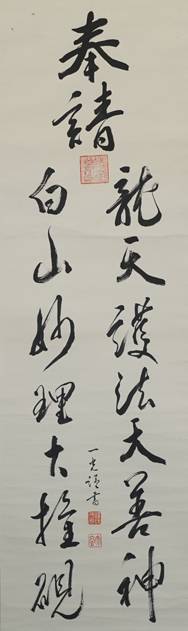 奉請
龍天護法大善神
白山妙理大権現
一光謹書